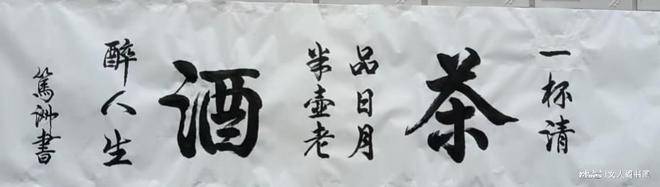 一杯清
茶
品日月
半壶老
酒
醉人生
篤洲書